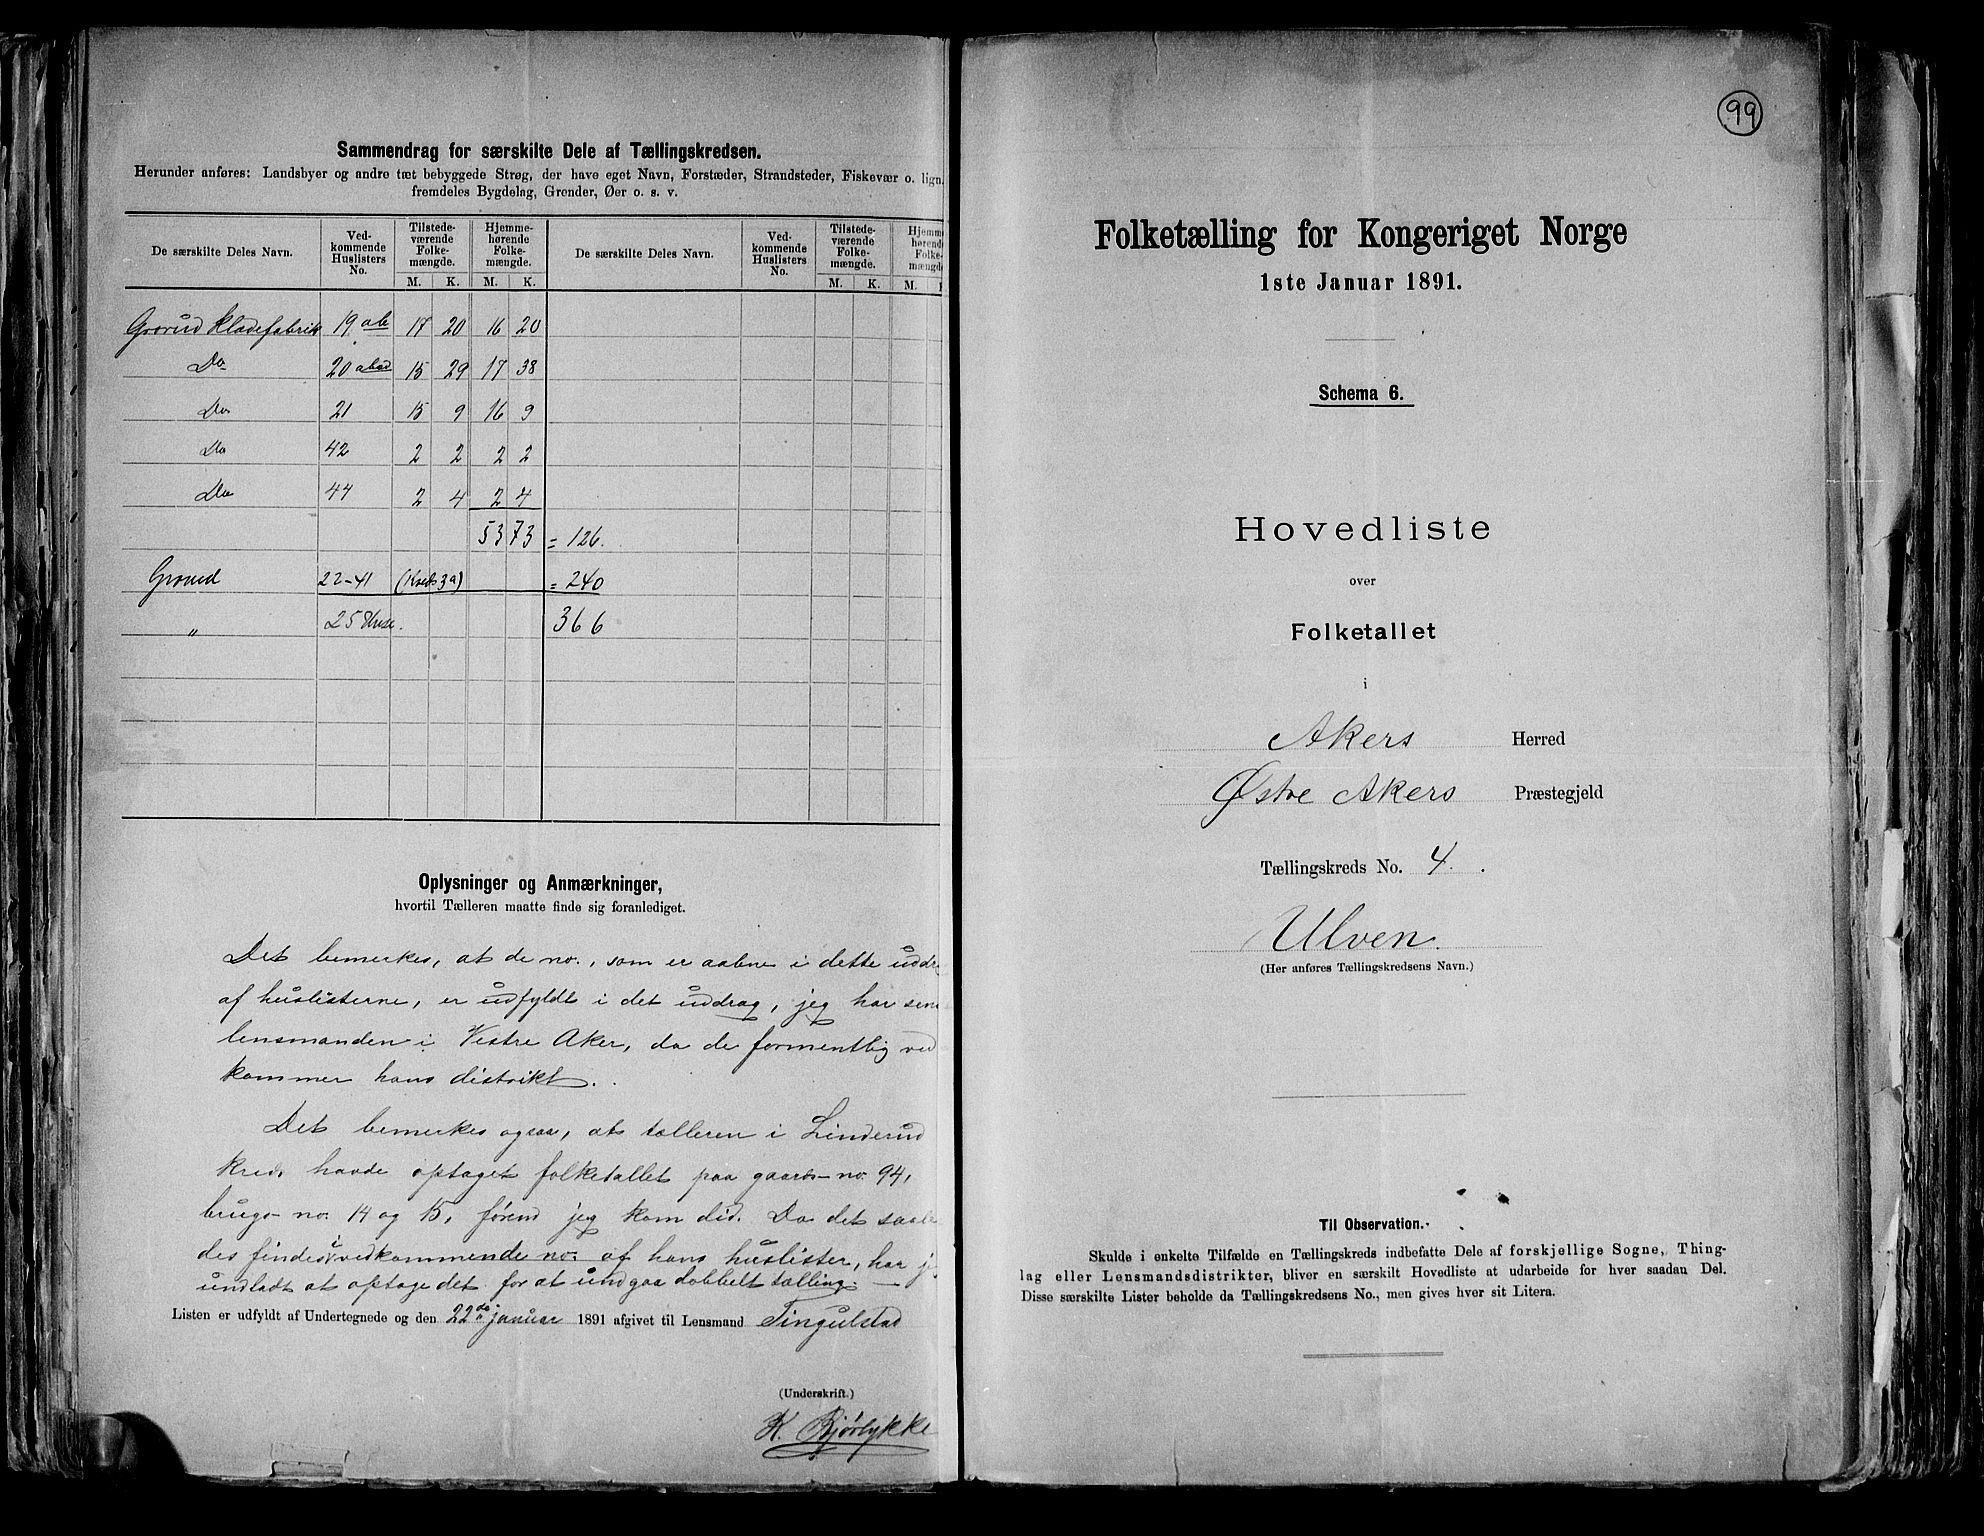 Sammendrag for særskilte Dele af Tællingskredsen.
Herunder anføres: Landsbyer og andre tæt bebyggede Strøg, der have eget Navn, Forstæder, Strandsteder, Fiskevær o. lign.
fremdeles Bygdelag, Grender, Øer o. s. v.
De særskilte Deles Navn. Ved-kommende Huslisters No. Tilstede-værende Folke-mængde. Hjemme-hørende Folke-mængde. De særskilte Deles Navn. Ved-kommende Huslisters No. Tilstede-værende Folke-mængde. Hjemm hørend Folke mængd
M. K. M. K. M. K. M.
Grorud Klædefabrik 19 ab 17 20 16 20
Do 20 abcd 15 29 17 38
Do 21 15 9 16 9
Do 42 2 2 2 2
Do 44 2 4 2 4
53 73 = 126.
Grorud 22-41 (Kreds 3a) = 240
" 25 Huse. 366
Oplysninger og Anmærkninger,
hvortil Tælleren maatte finde sig foranlediget.
Det bemerkes, at de no., som er aabne i dette uddr
af huslisterne, er udfyldt i det uddrag, jeg har sen
lensmanden i Vestre Aker, da de formentlig ved
kommer hans distrikt.
Det bemerkes ogsaa, at tælleren i Linderud
kreds havde optaget folketallet paa gaards-no. 94,
brugs-no. 14 og 15, førend jeg kom did. Da det saale
des findes i vedkommende no. af hans huslister, har je
undladt at optage det for at undgaa dobbelt tælling.
Listen er udfyldt af Undertegnede og den 22de januar 1891 afgivet til Lensmand Tingulstad
(Underskrift.)
K. Bjørlykke
99
Folketælling for Kongeriget Norge
1ste Januar 1891.
Schema 6.
Hovedliste
over
Folketallet
i
Akers Herred
Østre Akers Præstegjeld
Tællingskreds No. 4.
Ulven.
(Her anføres Tællingskredsens Navn.)
Til Observation.
Skulde i enkelte Tilfælde en Tællingskreds indbefatte Dele af forskjellige Sogne, Thing-
lag eller Lensmandsdistrikter, bliver en særskilt Hovedliste at udarbeide for hver saadan Del.
Disse særskilte Lister beholde da Tællingskredsens No., men gives hver sit Litera.